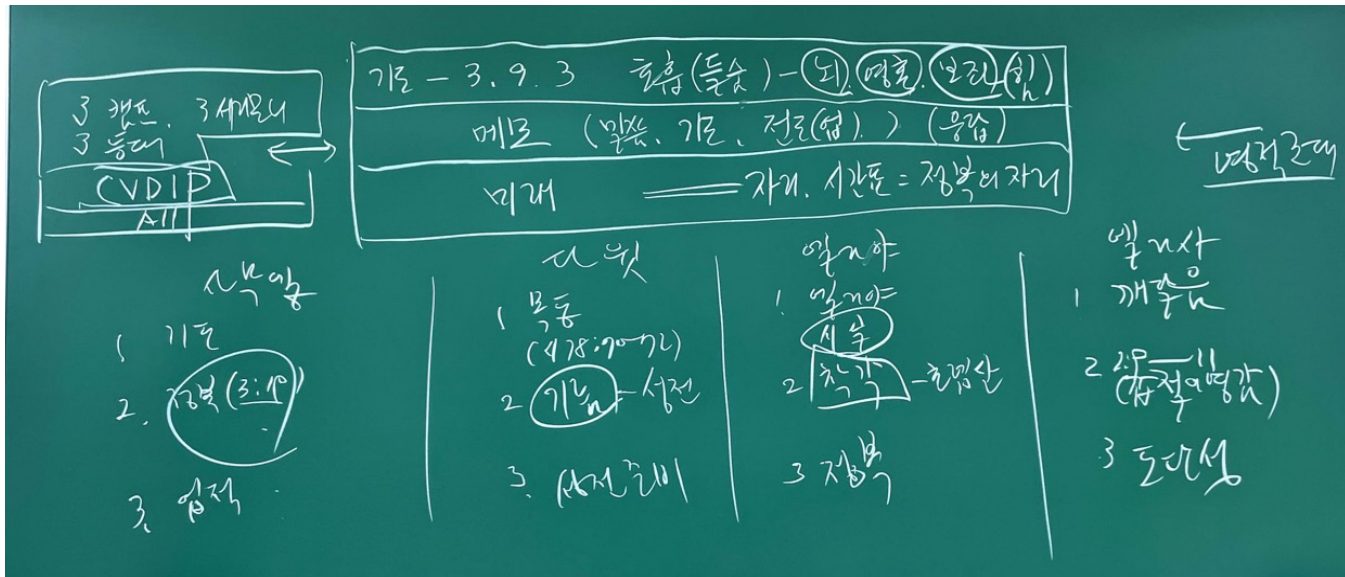 3 캠프. 3 세계문대
3 등대
CVDIP
All
기도 - 3. 9. 3 호흡 (들숨) - 뇌. 영혼. 보좌 (힘)
메모 (말씀, 기도, 전도(업). ) (응답)
미래 자리. 시간표 = 정복의 자리
영적군대
사무엘
1 기도
2. (3:19)
3.
다윗
1 목동
(시78:70-72)
2 기능 - 성전
3. 성전준비
엘리야
1. 엘리야
2 착각 - 호렙산
3 정복
엘리사
1 깨달음
2 2:9-11
(갑절의 영감)
3 도단성